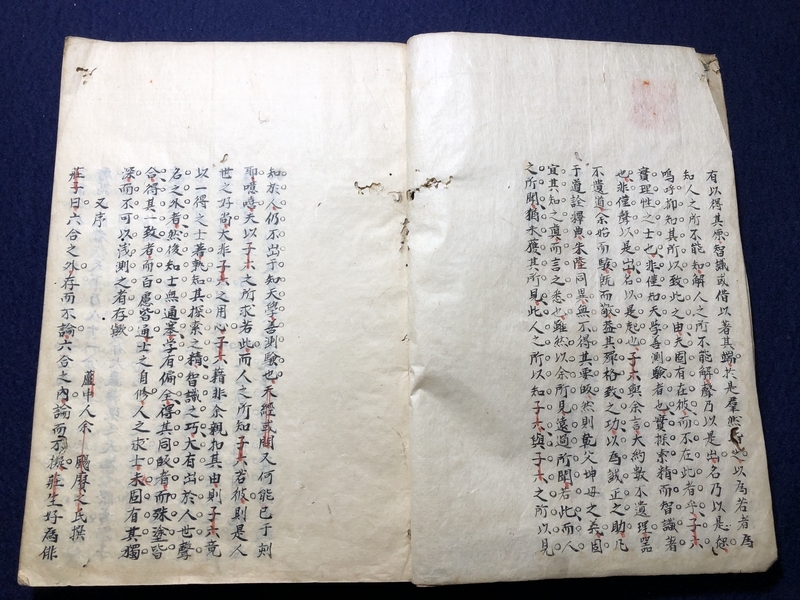 有以得其原智識或借以著其端於是羣然以為若者為
知人之所不能知解人之所不能解聲乃以是出名乃以是起
嗚呼抑知其所以致此之由夫固有在彼而不在此者乎子六
實理性之士也非僅知天學善測驗者也實探索精而智識著
也非僅聲以是出名以是起也子六與余言大約數不遺理器
不遺道余始而駭既而歎益其殫格致之功以為鐵正之助凡
于道詮釋典朱陸同異無不得其要眇然則乾父坤母之矣固
宜其知之真而言之悉也雖然以余所見遠過所聞若此而人
之所聞猶未應其所見此人之所以知子六與子六之所以見
知於人仍不出于知天學善測驗也未經或問又何能已于刺
耶噫噫夫以子六之所求者此而人之所知子六若彼則是人
世之好尚大非子六之用心子六藉非余親扣其由則子六竟
以一得之士著孰知其探索之精智識之巧大有出於人世聲
名之外者然後知士無通蹇學有偏全得其同眇者而殊塗皆
合得其一致者而百慮皆通士之自修人之求士未固有其獨
深而不可以淺測之者存歟
廬中人余颺賡之氏撰
又序
莊子曰六合之外存而不論六合之內論而不擬莊生好為俳